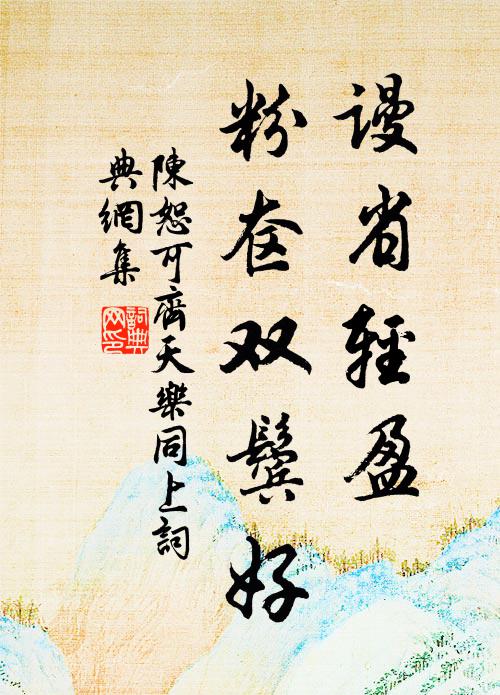 謾省輕盈
粉奁双鬓好
陳恕可齊天樂同上詞
典網集
詞典
网印